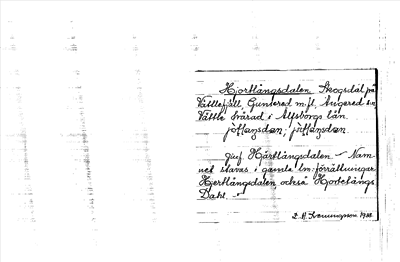 Hjortlångsdalen Skogsdal på
Vättlefjäll, Gunnered m.fl, Angered sn,
Vättle härad i Älfsborgs län.
Jmf. Hårtlångsdalen – Nam-
net stavas i gamla lm. förrättningar
Hjertlångsdalen också Hjortelångs
Dahl. –
1922